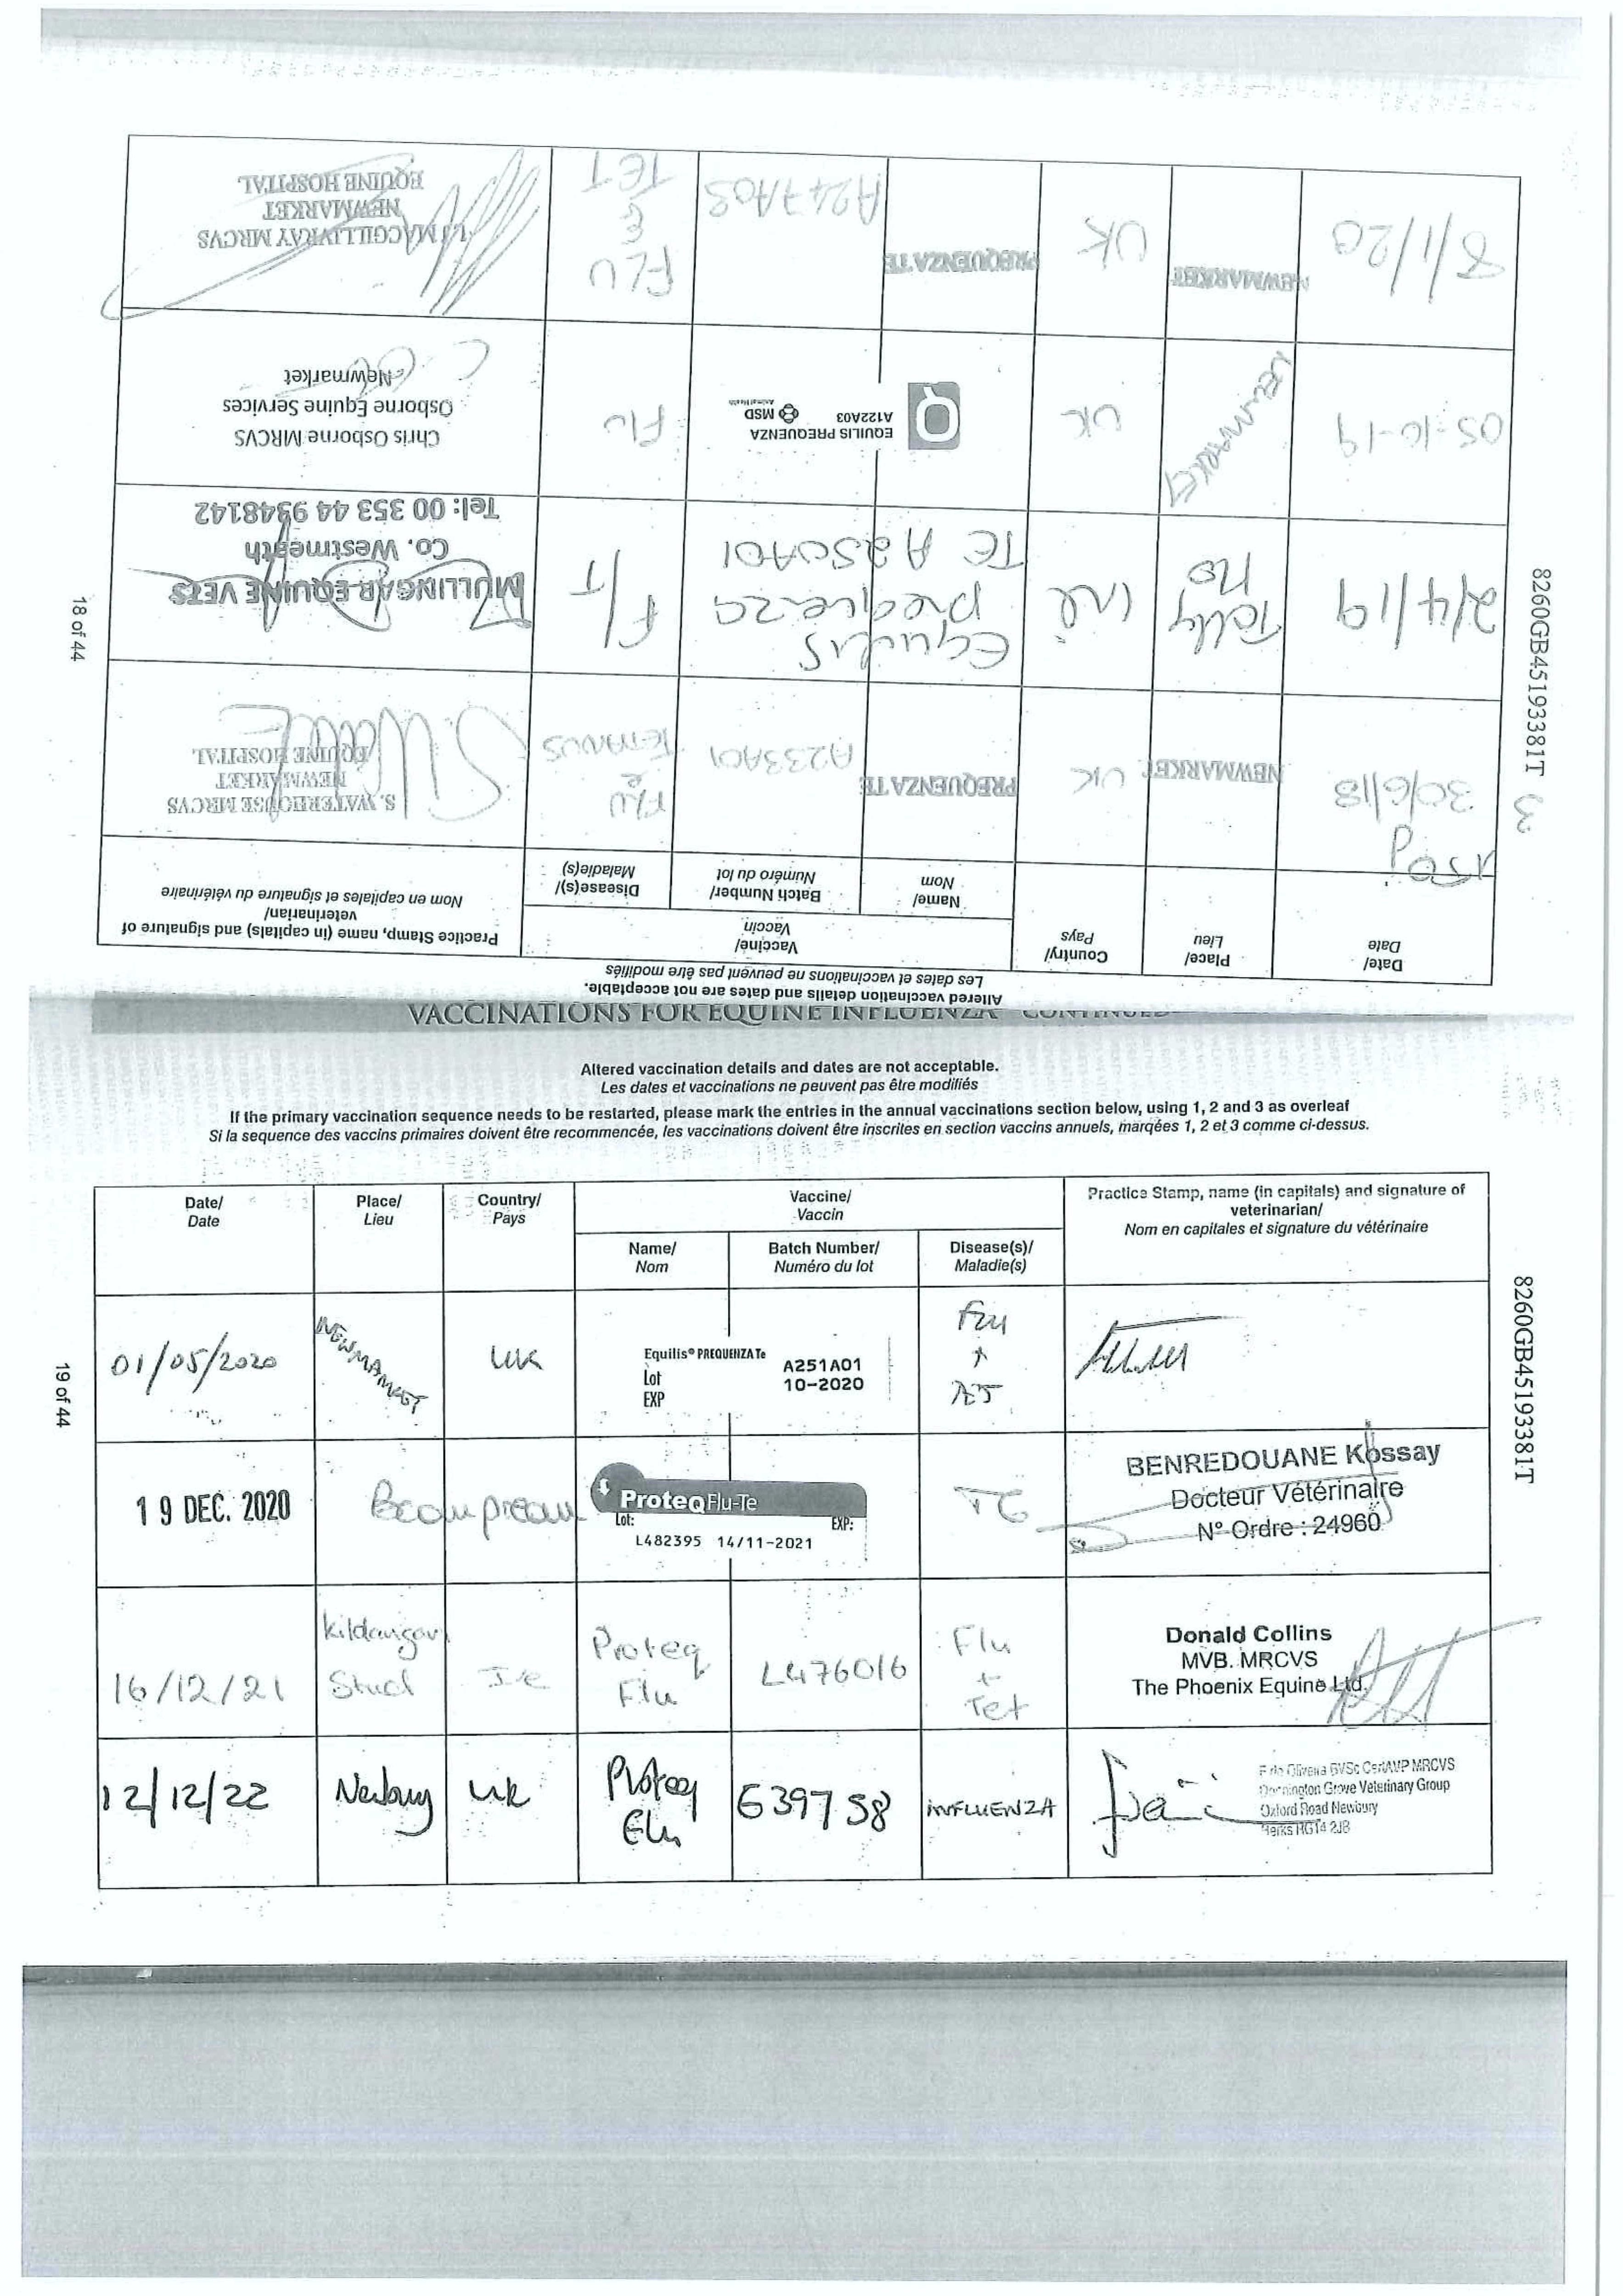 VACCINATIONS FOR EQUINE INFLUENZA CONTINUED
Altered vaccination details and dates are not acceptable.
Les dates et vaccinations ne peuvent pas être modifiés
Date/
Date
Place/
Lieu
Country/
Pays
Vaccine/
Vaccin
Name/
Nom
Batch Number/
Numéro du lot
Disease(s)/
Maladie(s)
Practice Stamp, name (in capitals) and signature of
veterinarian/
Nom en capitales et signature du vétérinaire
30/6/18
NEWMARKET
UK
PREQUENZA TE
A233A01
FLU
&
TETANUS
S. WATERHOUSE MRCVS
NEWMARKET
EQUINE HOSPITAL
2/4/19
Tally
ho
Irl
Equilis
prequenza
TE A250A01
F/T
MULLINGAR EQUINE VETS
Co. Westmeath
Tel: 00 353 44 9348142
05-10-19
NEWMARKET
UK
EQUILIS PREQUENZA
A122A03 MSD
Animal Health
Q
Flu
Chris Osborne MRCVS
Osborne Equine Services
Newmarket
8/1/20
NEWMARKET
UK
PREQUENZA TE
A247A03
FLU
&
TET
MACGILLIVRAY MRCVS
NEWMARKET
EQUINE HOSPITAL
8260GB45193381T
3
18 of 44
Altered vaccination details and dates are not acceptable.
Les dates et vaccinations ne peuvent pas être modifiés
If the primary vaccination sequence needs to be restarted, please mark the entries in the annual vaccinations section below, using 1, 2 and 3 as overleaf
Si la sequence des vaccins primaires doivent être recommencée, les vaccinations doivent être inscrites en section vaccins annuels, marqées 1, 2 et 3 comme ci-dessus.
Date/
Date
Place/
Lieu
Country/
Pays
Vaccine/
Vaccin
Name/
Nom
Batch Number/
Numéro du lot
Disease(s)/
Maladie(s)
Practice Stamp, name (in capitals) and signature of
veterinarian/
Nom en capitales et signature du vétérinaire
01/05/2020
NEWMARKET
UK
Equilis® PREQUENZA Te
Lot A251A01
EXP 10-2020
Flu
+
19 DEC. 2020
Beaupreau
ProteqFlu-Te
Lot: EXP:
L482395 14/11-2021
BENREDOUANE Kossay
Docteur Vétérinaire
N° Ordre : 24960
16/12/21
Kildangan
Stud
Ire
Proteq
Flu
L476016
Flu
+
Tet
Donald Collins
MVB. MRCVS
The Phoenix Equine Ltd.
12/12/22
Newbury
UK
Proteq
Flu
G39758
INFLUENZA
BVSc CertAVP MRCVS
Donnington Grove Veterinary Group
Oxford Road Newbury
Berks RG14 2JB
8260GB45193381T
19 of 44